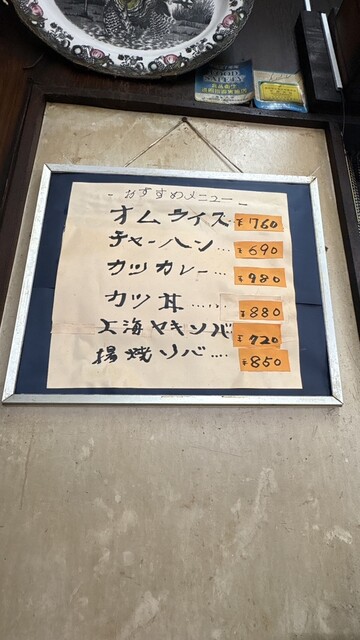 おすすめメニュー
オムライス ¥760
チャーハン... ¥690
カツカレー... ¥980
カツ丼..... ¥880
上海ヤキソバ ¥720
揚焼ソバ.... ¥850